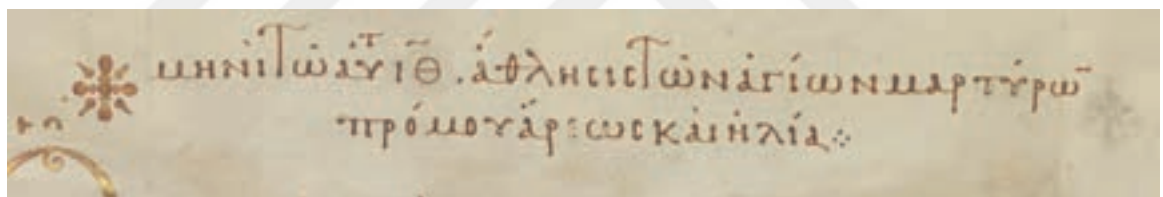 μηνὶ τῶ ἀυτ ιθ̄. ἄθλησις τῶν ἁγίων μαρτύρω̄
πρόμου ἄρεως καὶ ἠλία⁘